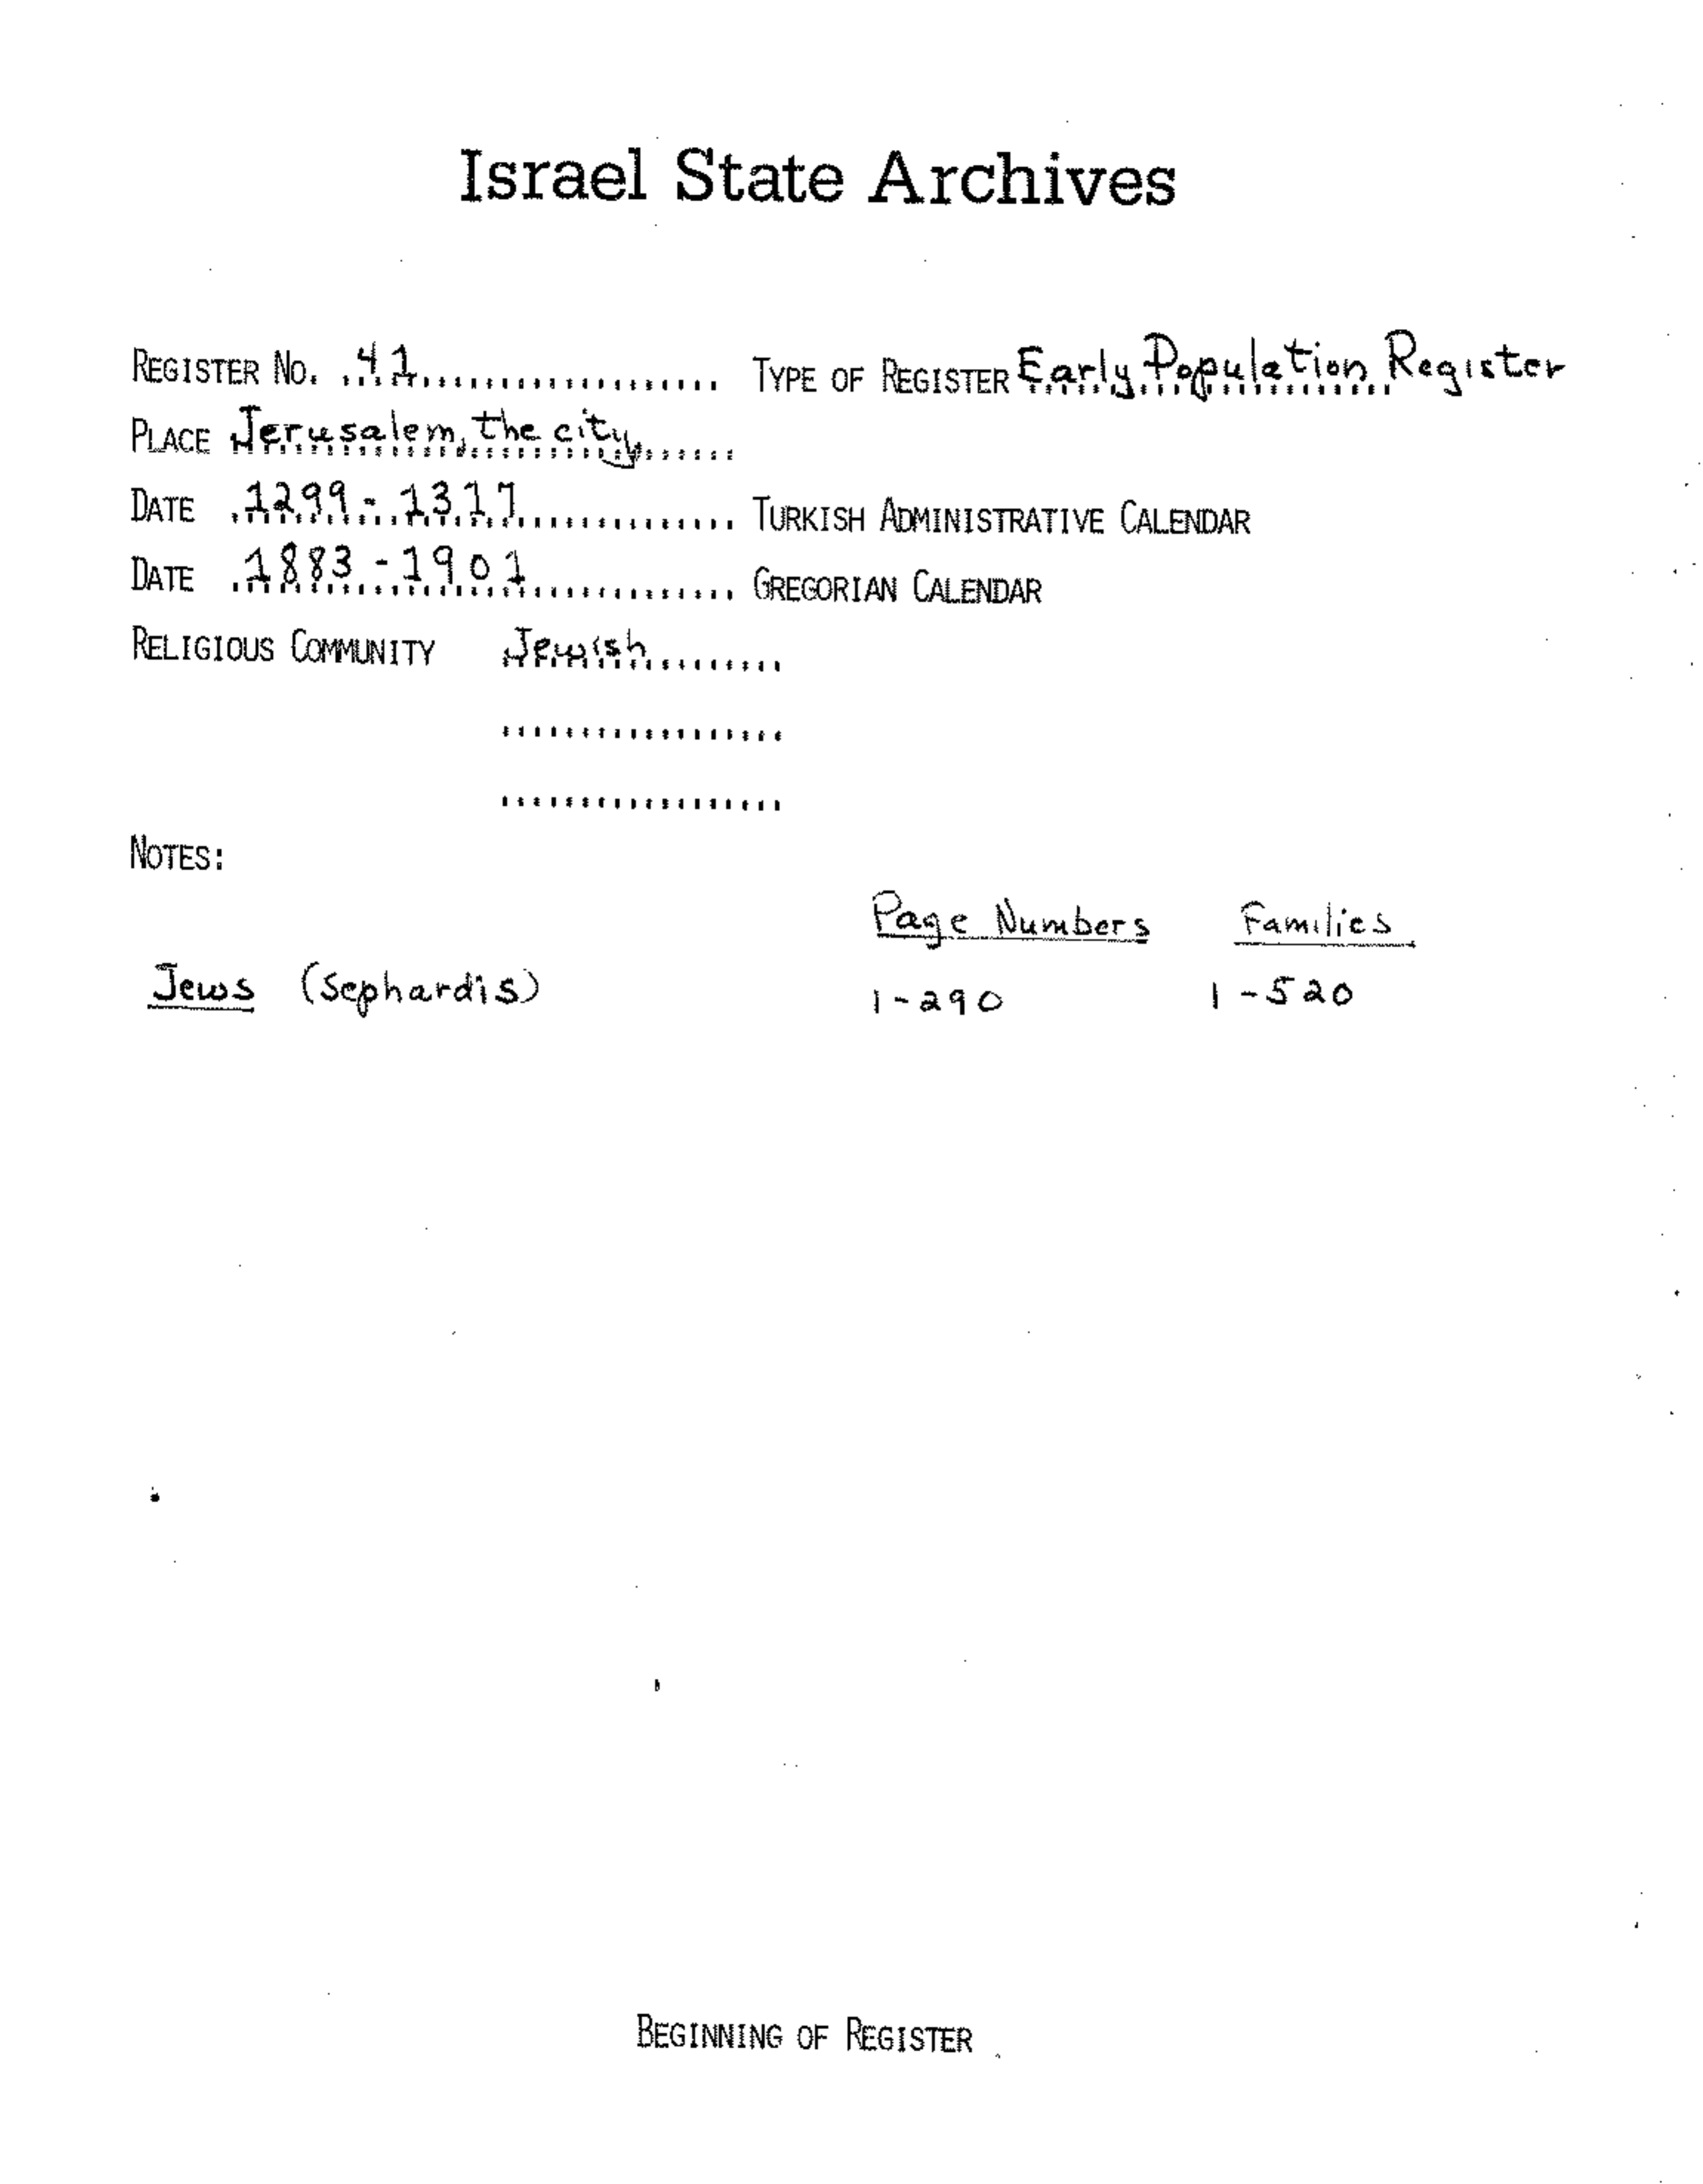 Israel State Archives
REGISTER NO. 41 TYPE OF REGISTER Early Population Register
PLACE Jerusalem, the city
DATE 1299 - 1317 TURKISH ADMINISTRATIVE CALENDAR
DATE 1883 - 1901 GREGORIAN CALENDAR
RELIGIOUS COMMUNITY Jewish
NOTES:
Page Numbers Families
Jews (Sephardis) 1-290 1-520
BEGINNING OF REGISTER